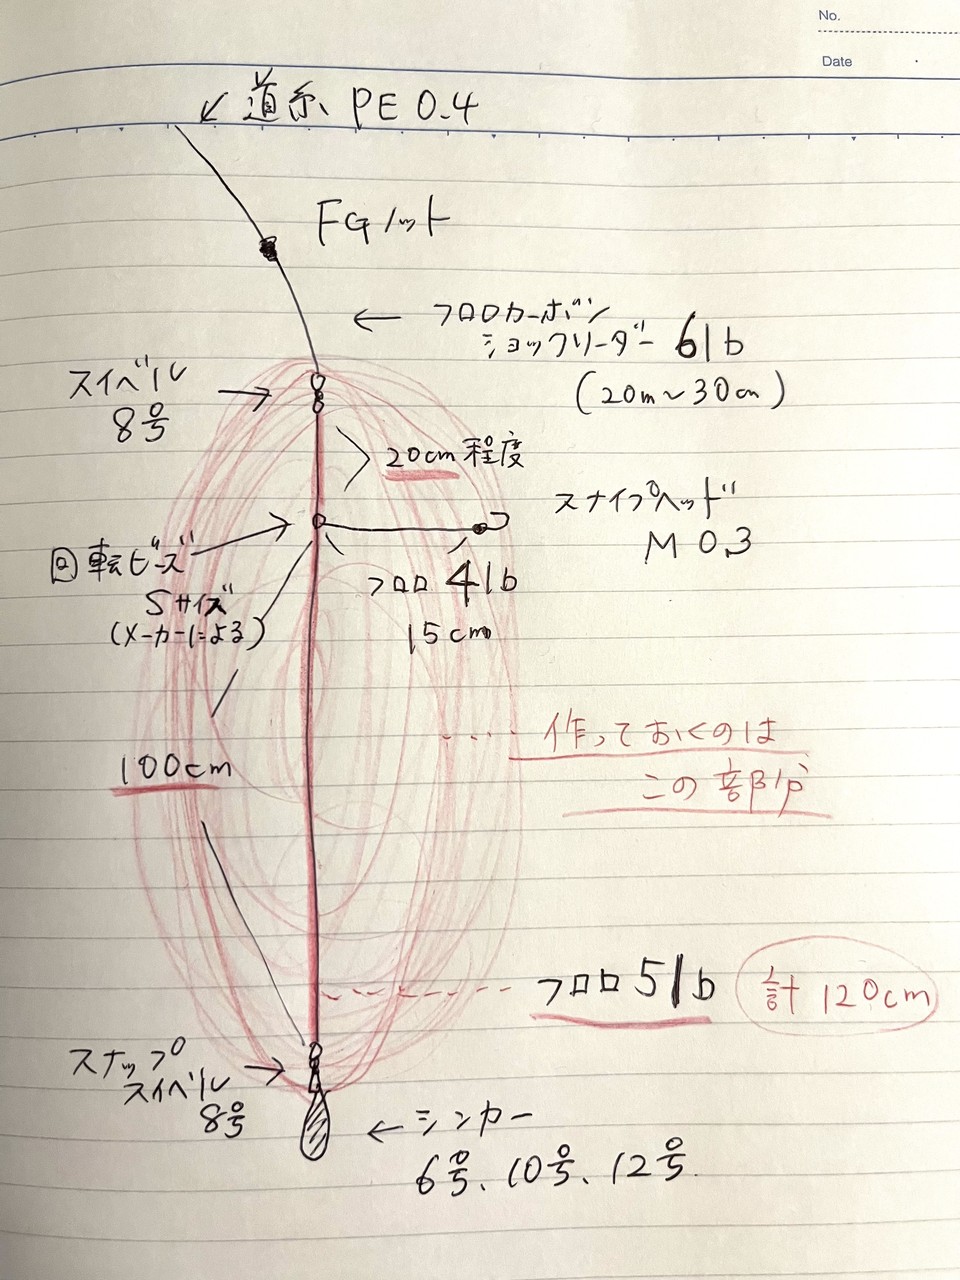 No.
Date
道糸 PE 0.4
FGノット
フロロカーボン
ショックリーダー 6lb
(20m~30cm)
スイベル
8号
20cm 程度
スナイプヘッド
M 0.3
回転ビーズ
Sサイズ
(メーカーによる)
フロロ 4lb
15cm
作っておくのは
この部分
100cm
フロロ 5lb
計 120cm
スナップ
スイベル
8号
シンカー
6号、10号、12号